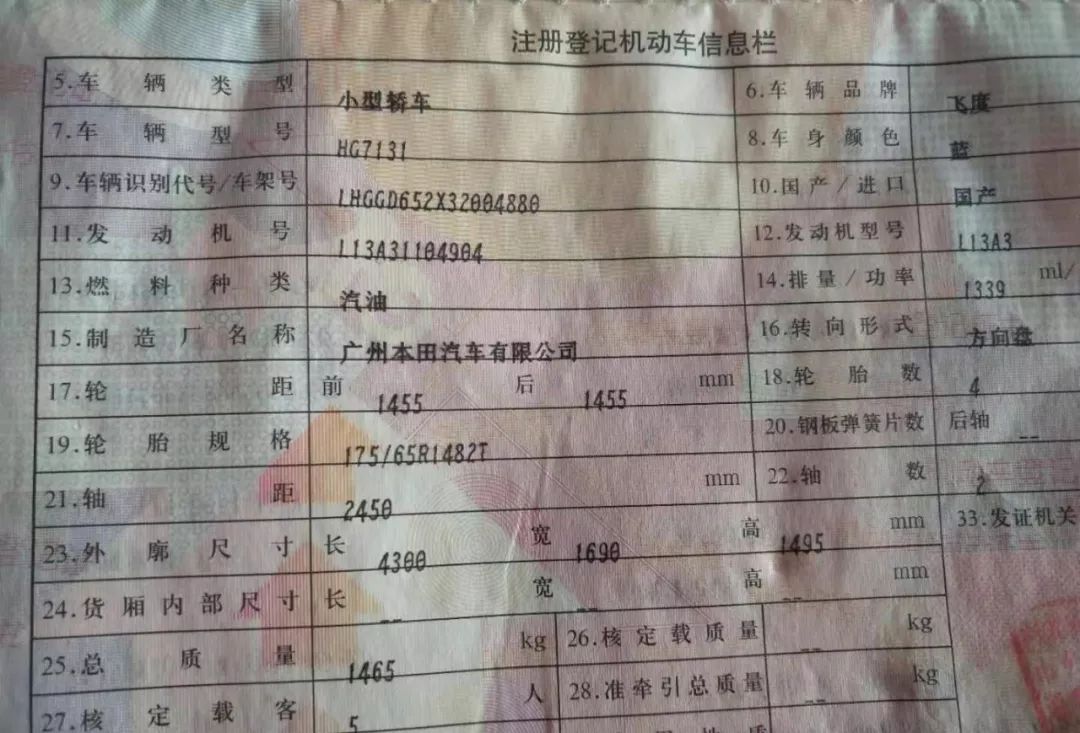 注册登记机动车信息栏
5.车辆类型 小型轿车 6.车辆品牌 飞度
7.车辆型号 HG7131 8.车身颜色 蓝
9.车辆识别代号/车架号 LHGGD652X32004880 10.国产/进口 国产
11.发动机号 L13A31104904 12.发动机型号 L13A3
13.燃料种类 汽油 14.排量/功率 1339 ml/
15.制造厂名称 广州本田汽车有限公司 16.转向形式 方向盘
17.轮距 前 1455 后 1455 mm 18.轮胎数 4
19.轮胎规格 175/65R1482T 20.钢板弹簧片数 后轴 --
21.轴距 2450 mm 22.轴数 2
23.外廓尺寸 长 4300 宽 1690 高 1495 mm 33.发证机关
24.货厢内部尺寸 长 -- 宽 -- 高 -- mm
25.总质量 1465 kg 26.核定载质量 -- kg
27.核定载客 5 人 28.准牵引总质量 -- kg